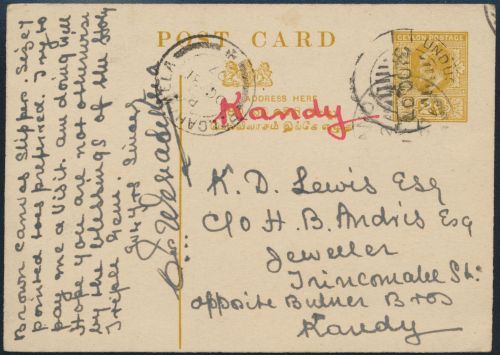 POST CARD
CEYLON POSTAGE
ADDRESS HERE
Kandy
K. D. Lewis Esq
C/o H. B. Andris Esq
Jeweller
Trincomalee St:
opposite Butner Bros
Kandy
Brown Canvas Slippers Size 7
pointed toes preferred. Try to
pay me a visit. Am doing well
Hope you are not otherwise
by the blessings of the Holy
Triple Gem.
Yrs Sincerely